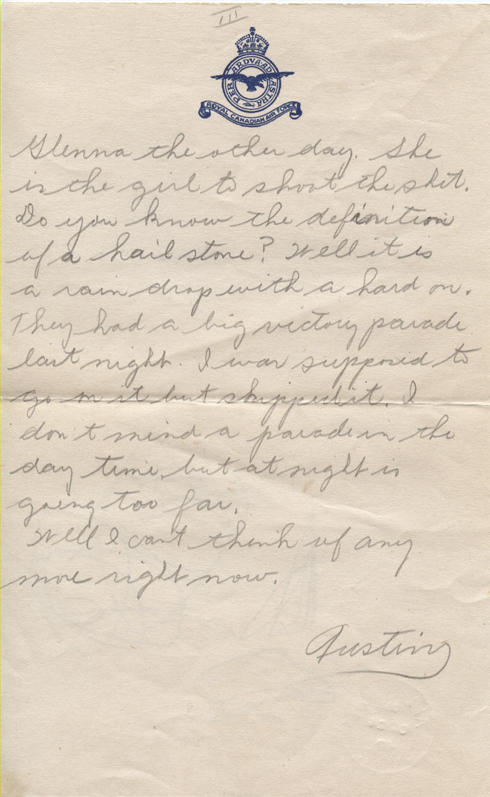 III
PER ARDUA AD ASTRA
ROYAL CANADIAN AIR FORCE
Glenna the other day. She
is the girl to shoot the shit.
Do you know the definition
of a hail stone? Well it is
a rain drop with a hard on.
They had a big victory parade
last night. I was supposed to
go on it but skipped it. I
don't mind a parade in the
day time, but at night is
going too far.
Well I can't think of any
more right now.
Austin